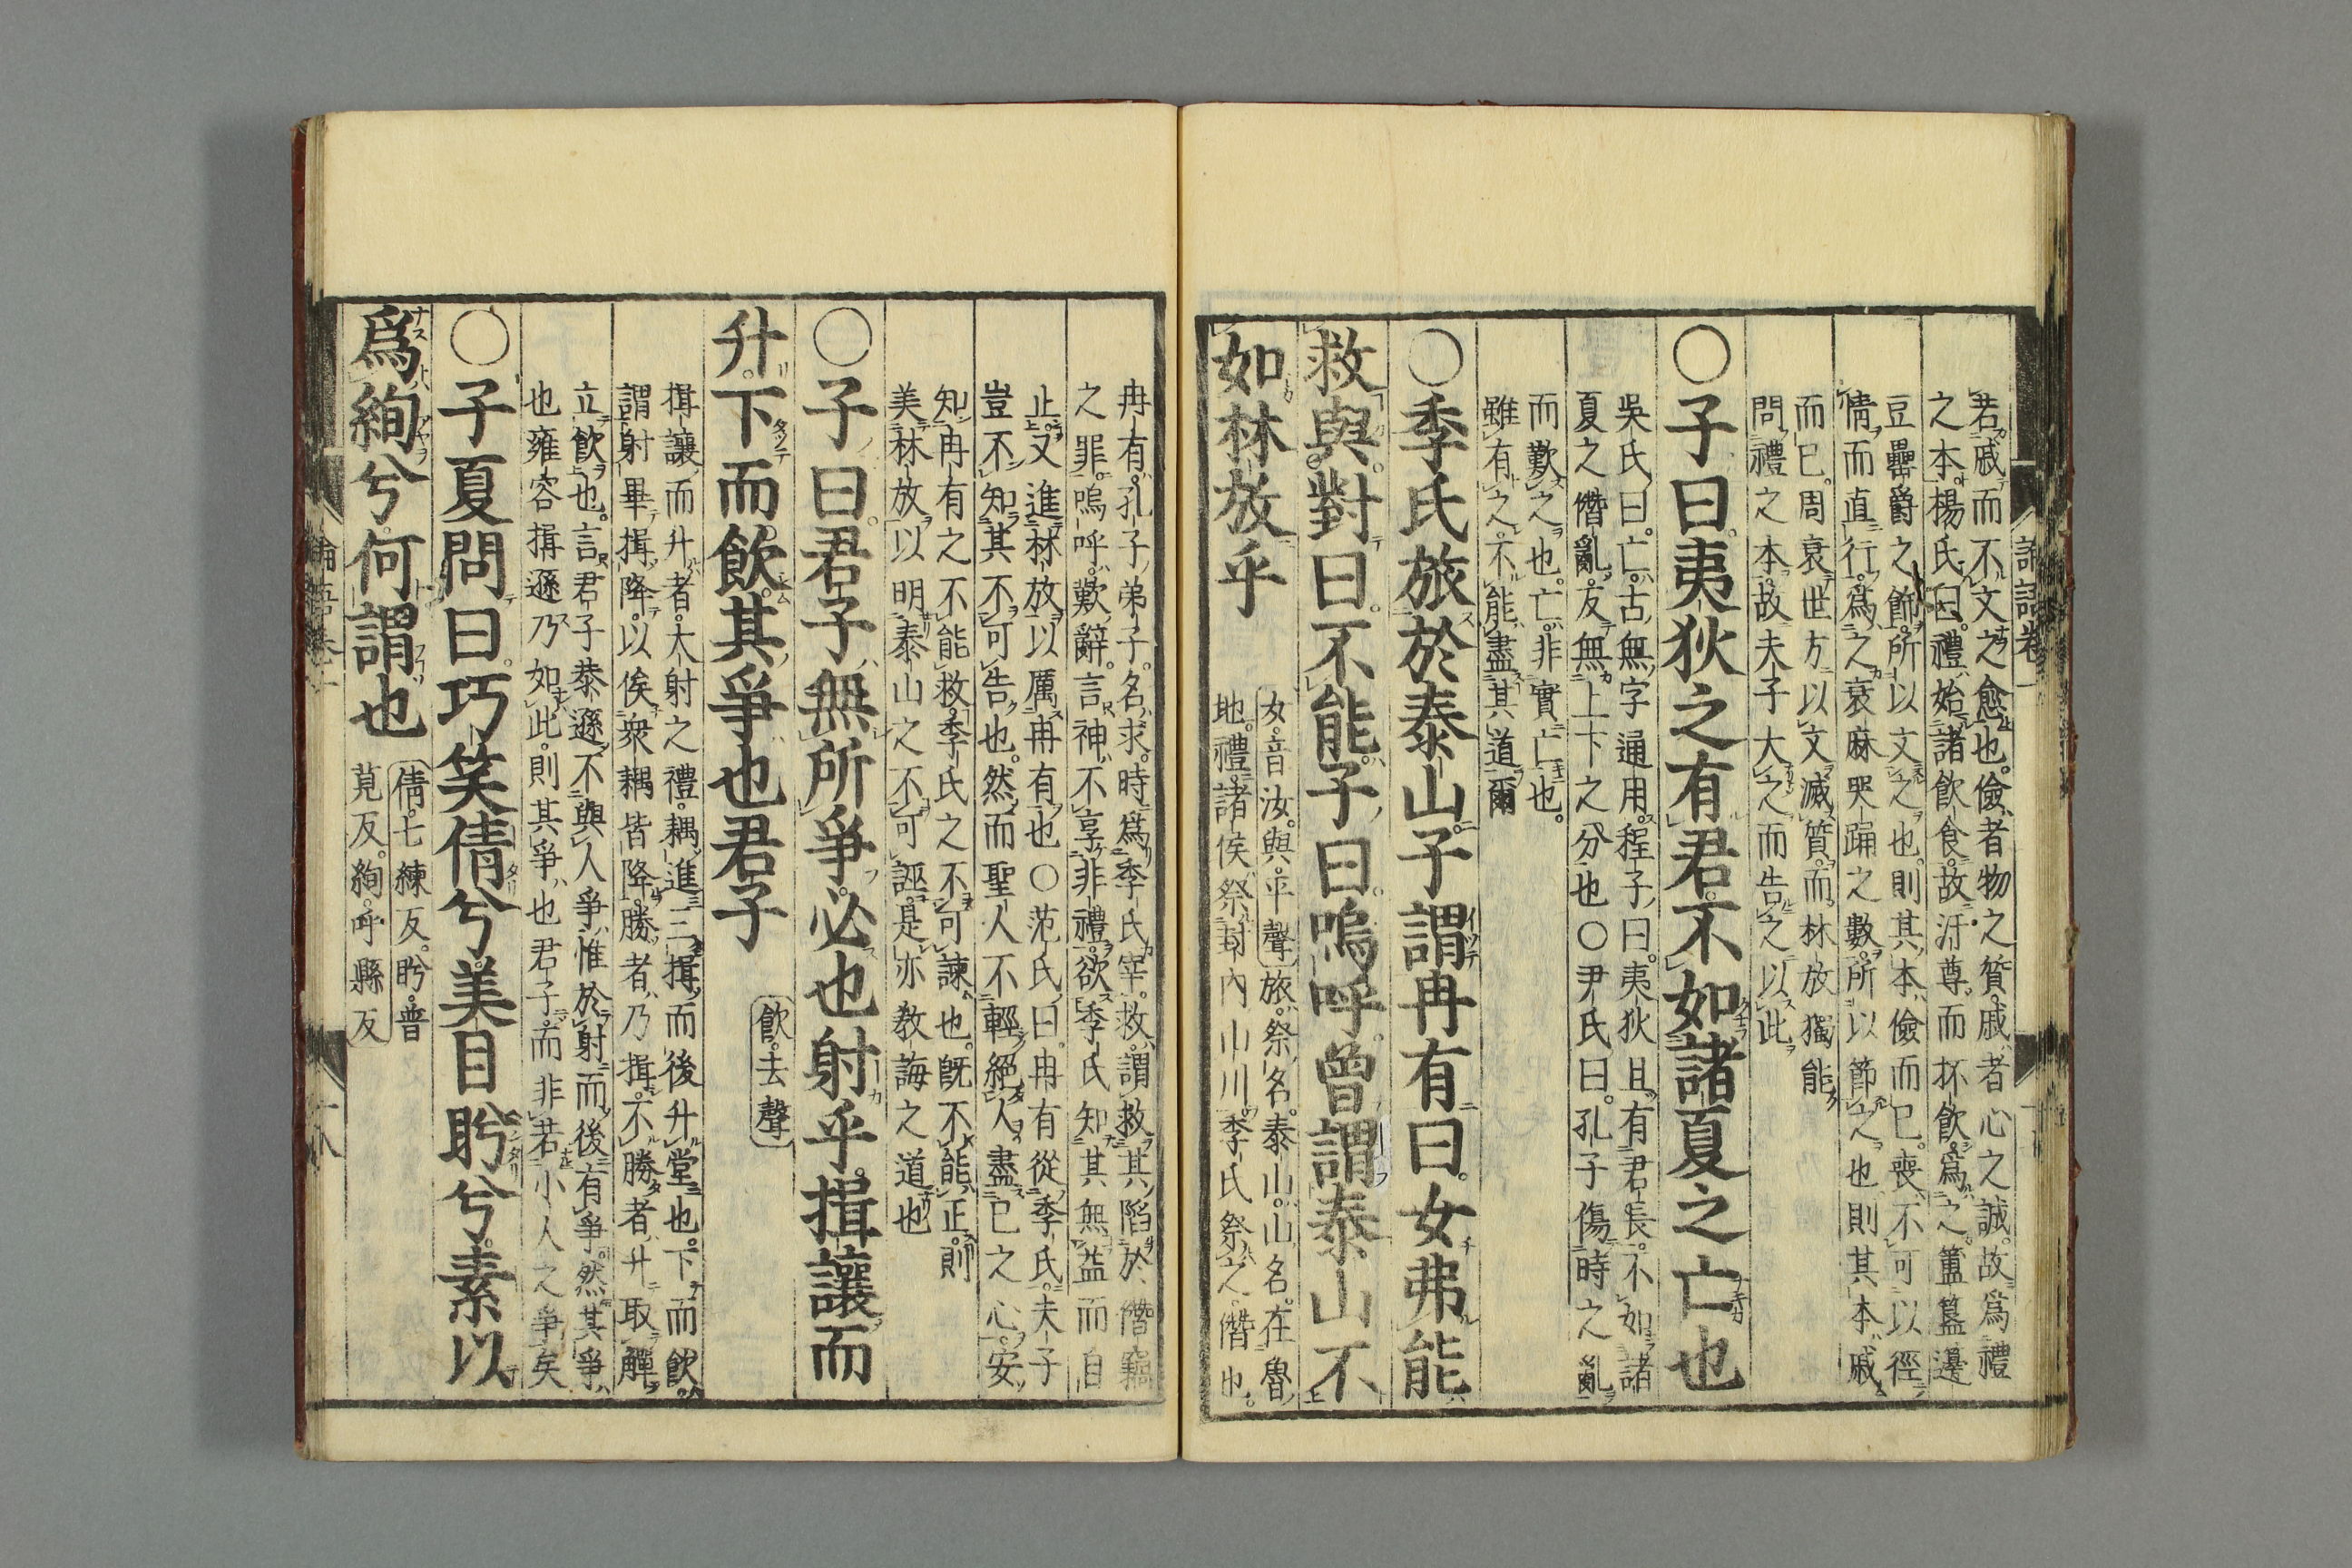 若戚而不文之愈也。儉者物之質。戚者心之誠。故爲禮
之本。楊氏曰。禮始諸飲食。故汙尊而抔飲。爲之簠簋籩
豆罍爵之飾。所以文之也。則其本儉而已。喪不可以徑
情而直行。爲之衰麻哭踊之數。所以節之也。則其本戚
而已。周衰世方以文滅質。而林放獨能
問禮之本。故夫子大之。而告之以此
○子曰。夷狄之有君。不如諸夏之亡也
吳氏曰。亡。古無字通用。程子曰。夷狄且有君長。不如諸
夏之僭亂。反無上下之分也○尹氏曰。孔子傷時之亂
而歎之也。亡。非實亡也。
雖有之。不能盡其道爾
○季氏旅於泰山。子謂冉有曰。女弗能
救與。對曰。不能。子曰。嗚呼。曾謂泰山不
如林放乎
女。音汝。與。平聲。旅。祭名。泰山。山名。在魯
地。禮。諸侯祭封內山川。季氏祭之。僭也。
冉有。孔子弟子。名求。時爲季氏宰。救。謂救其陷於僭竊
之罪。嗚呼。歎辭。言神不享非禮。欲季氏知其無益而自
止。又進林放以厲冉有也○范氏曰。冉有從季氏。夫子
豈不知其不可告也。然而聖人不輕絕人。盡已之心。安
知冉有之不能救。季氏之不可諫也。旣不能正。則
美林放以明泰山之不可誣。是亦敎誨之道也
○子曰。君子無所爭。必也射乎。揖讓而
升。下而飲。其爭也君子
飲。去聲
揖讓而升者。大射之禮。耦進三揖。而後升堂也。下而飲。
謂射畢揖降。以俟衆耦皆降。勝者乃揖。不勝者升取觶
立飲也。言君子恭遜不與人爭。惟於射而後有爭。然其爭
也雍容揖遜乃如此。則其爭也君子。而非若小人之爭矣
○子夏問曰。巧笑倩兮。美目盼兮。素以
爲絢兮。何謂也
倩。七練反。盼。普
莧反。絢。呼縣反